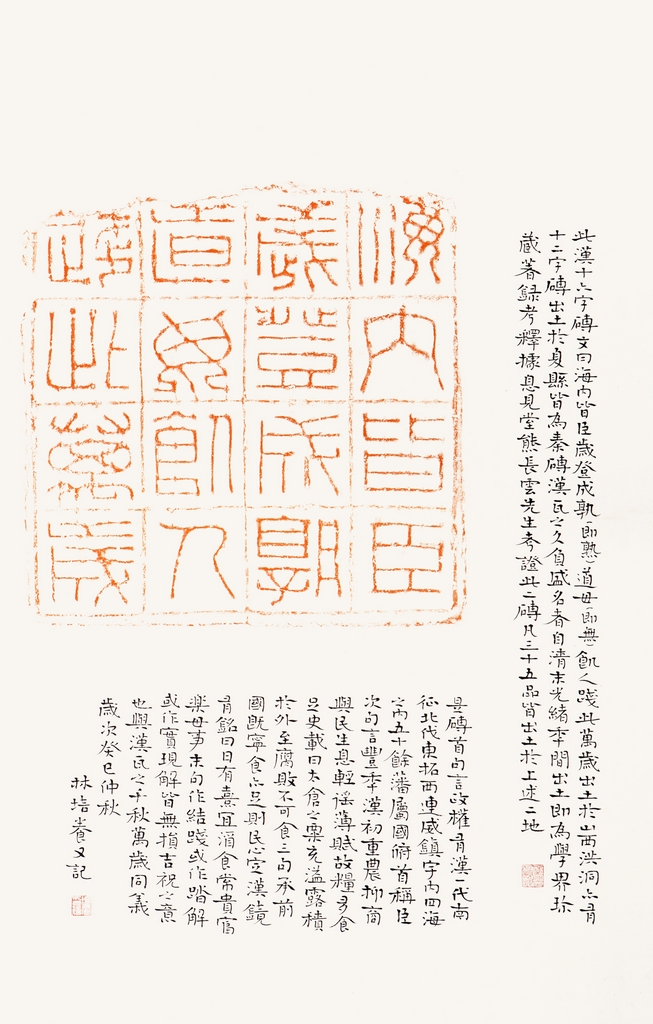 海內皆臣
歲登成孰
道毋飢人
踐此萬歲
此漢十六字磚文曰海內皆臣歲登成孰(即熟)道毋(即無)飢人踐此萬歲出土於山西洪洞亦有
十二字磚出土於夏縣皆為秦磚漢瓦之久負盛名者自清末光緒季間出土即為學界珍
藏著錄考釋據息見堂熊長雲先生考證此二磚凡三十五品皆出土於上述二地
是磚首句言政權有漢一代南
征北伐東拓西連威鎮宇內四海
之內五十餘藩屬國俯首稱臣
次句言豐季漢初重農抑商
與民生息輕徭薄賦故糧多食
足史載曰太倉之粟充溢露積
於外至腐敗不可食三句承前
國既寧食亦足則民心定漢鏡
有銘曰日有熹宜酒食常貴富
樂毋事末句作結踐或作踏解
或作實現解皆無損吉祝之意
也與漢瓦之千秋萬歲同義
歲次癸巳仲秋
林培養又記